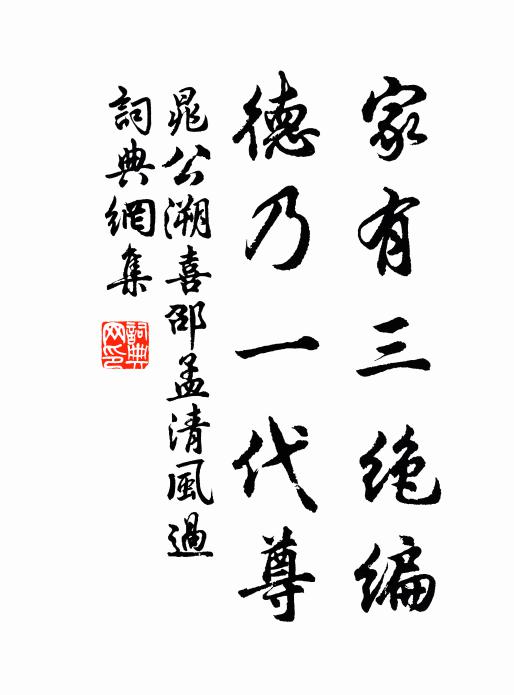 家有三絶編
德乃一代尊
晁公溯喜邵孟清風過
詞典網集
詞典
网印